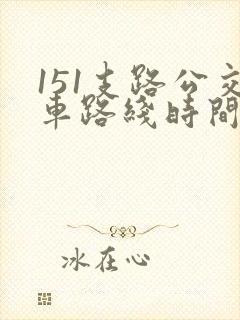 151支路公交
車路綫時間
冰在心